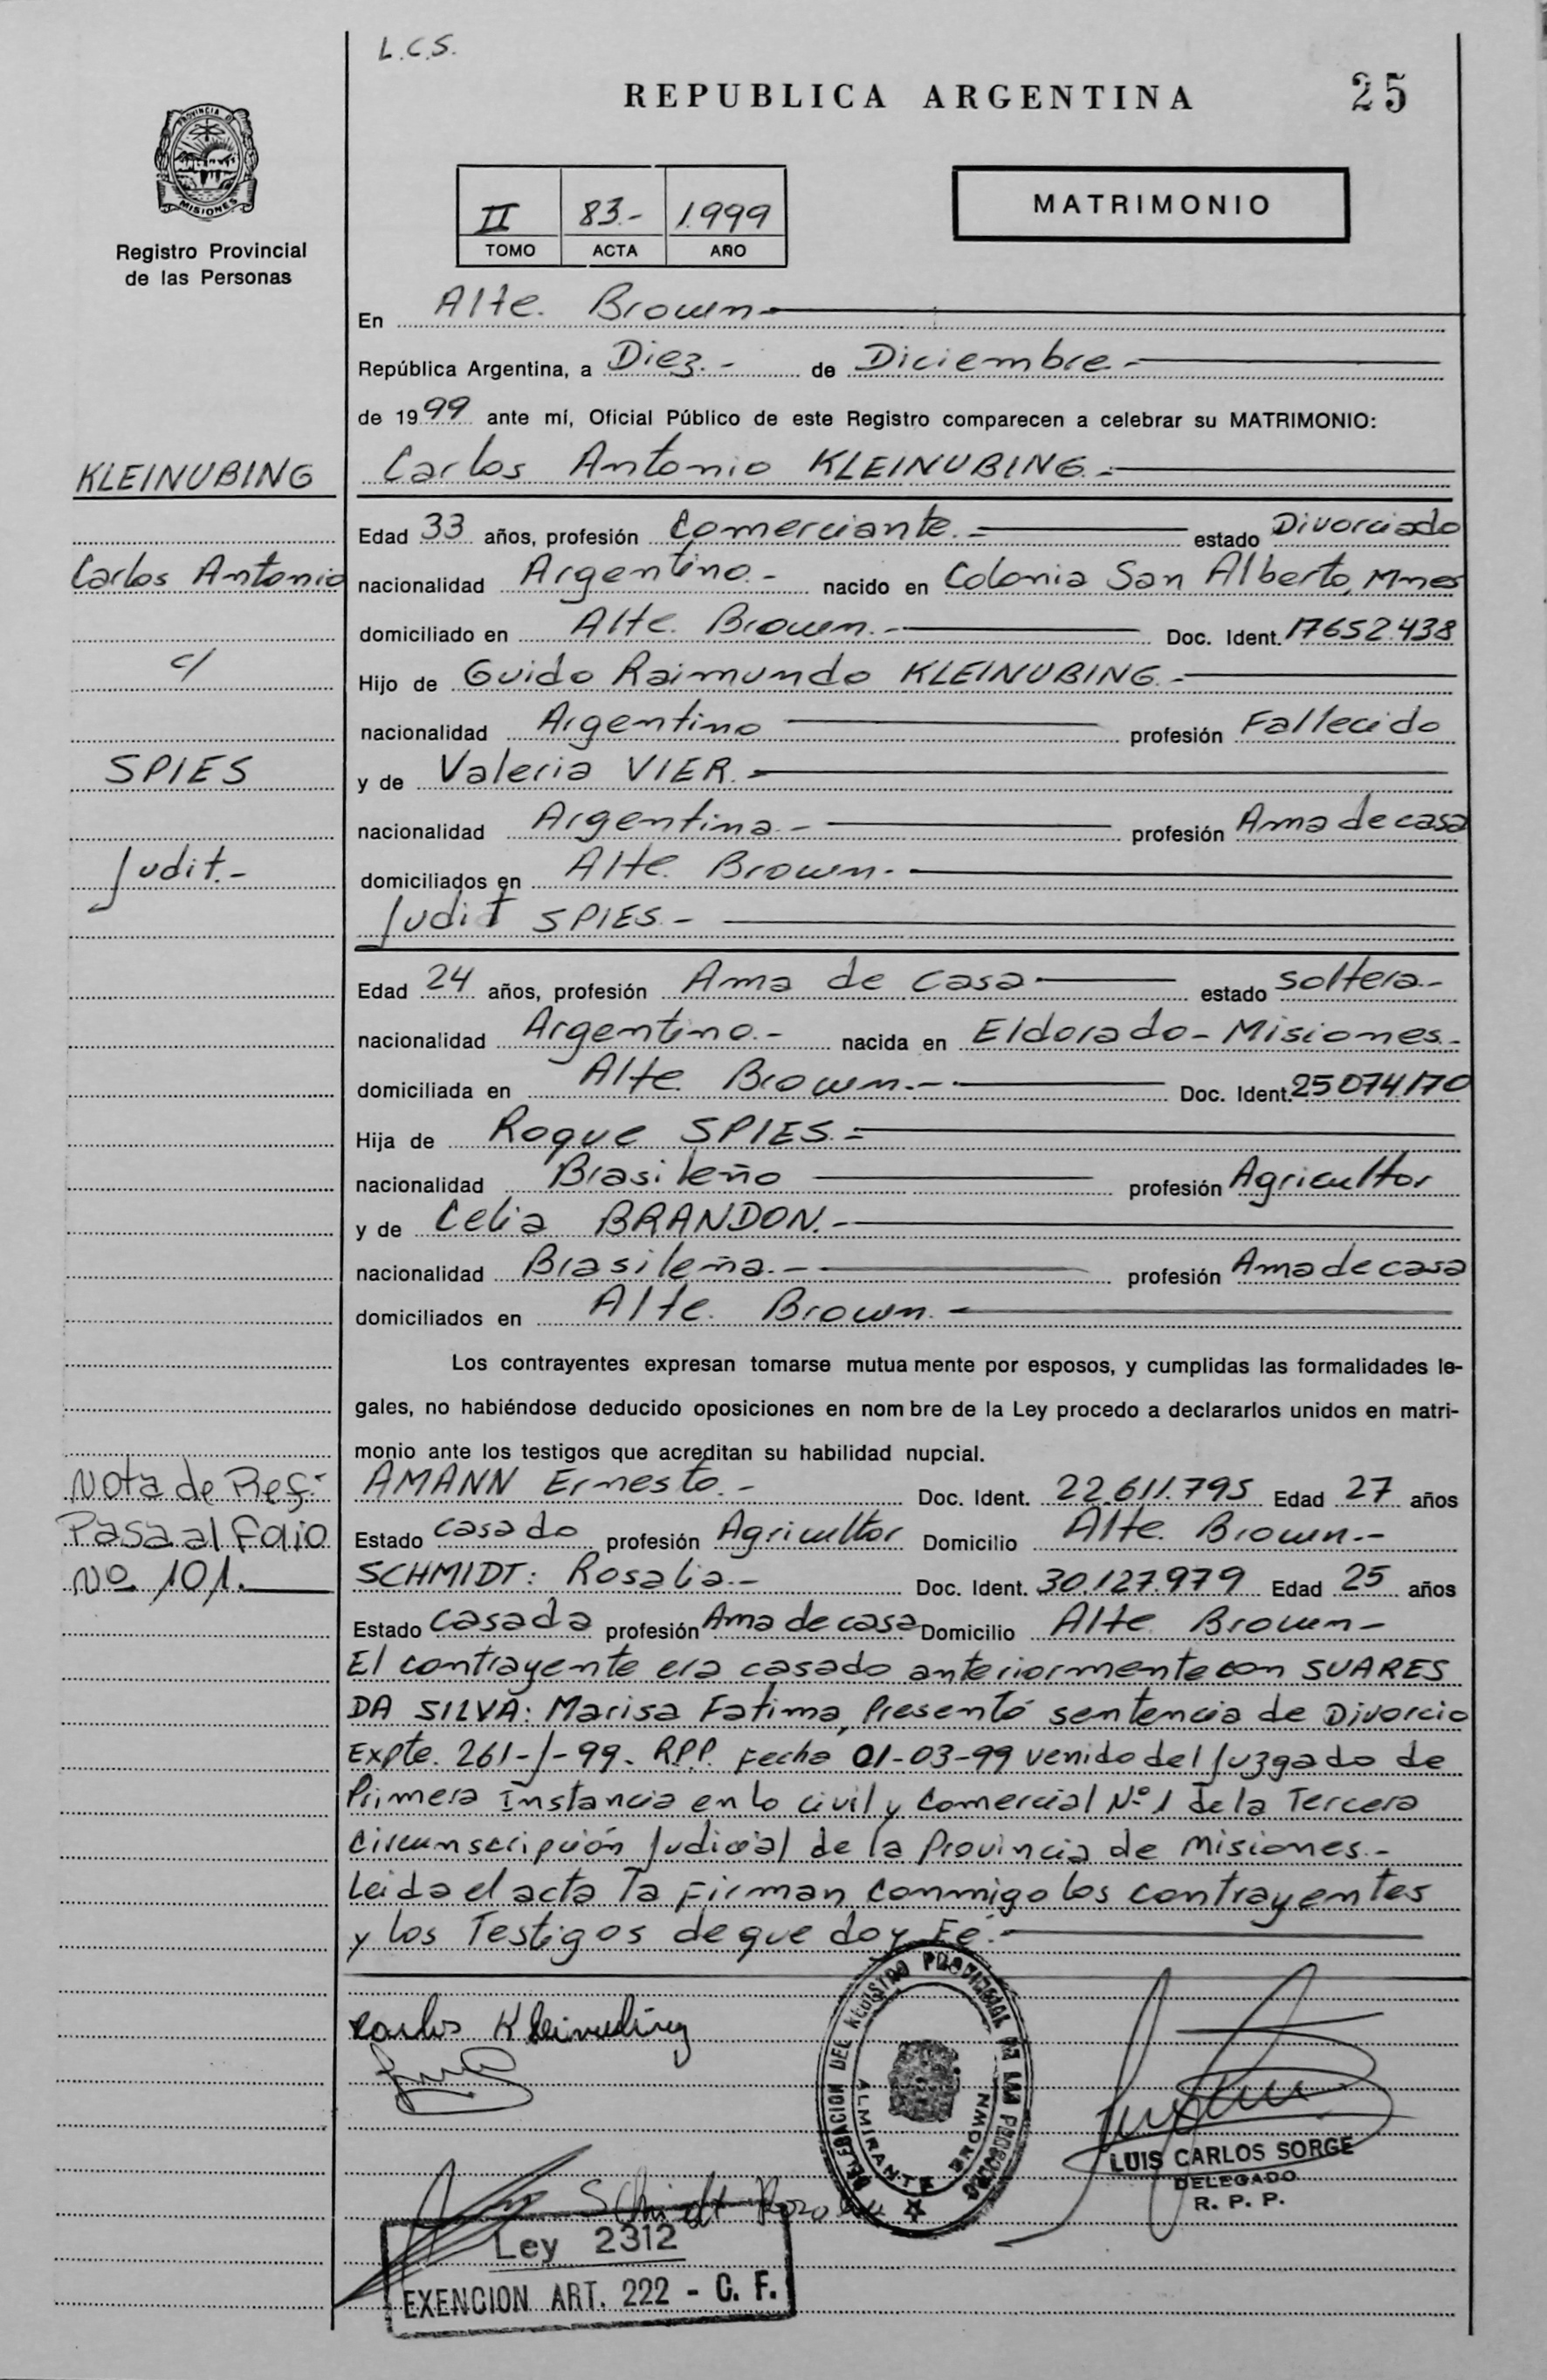 L.C.S.
REPUBLICA ARGENTINA
25
PROVINCIA DE
MISIONES
Registro Provincial
de las Personas
II 83.- 1.999
TOMO ACTA AÑO
MATRIMONIO
En Alte. Brown
República Argentina, a Diez.- de Diciembre.-
de 1999 ante mí, Oficial Público de este Registro comparecen a celebrar su MATRIMONIO:
KLEINUBING
Carlos Antonio KLEINUBING.-
Edad 33 años, profesión Comerciante.- estado Divorciado
Carlos Antonio
nacionalidad Argentino.- nacido en Colonia San Alberto, Mnes
domiciliado en Alte. Brown.- Doc. Ident. 17652.438
c/
Hijo de Guido Raimundo KLEINUBING.-
nacionalidad Argentino profesión Fallecido
SPIES
y de Valeria VIER.-
nacionalidad Argentina.- profesión Ama de casa
Judit.-
domiciliados en Alte. Brown.-
Judit SPIES.-
Edad 24 años, profesión Ama de casa estado soltera.-
nacionalidad Argentina.- nacida en Eldorado - Misiones.-
domiciliada en Alte. Brown.- Doc. Ident. 25074.170
Hija de Roque SPIES.-
nacionalidad Brasileño profesión Agricultor
y de Celia BRANDON.-
nacionalidad Brasileña.- profesión Ama de casa
domiciliados en Alte. Brown.-
Los contrayentes expresan tomarse mutua mente por esposos, y cumplidas las formalidades le-
gales, no habiéndose deducido oposiciones en nom bre de la Ley procedo a declararlos unidos en matri-
monio ante los testigos que acreditan su habilidad nupcial.
Nota de Ref:
Pasa al Folio
Nº 101.
AMANN Ernesto.- Doc. Ident. 22.611.795 Edad 27 años
Estado casado profesión Agricultor Domicilio Alte. Brown.-
SCHMIDT: Rosalia.- Doc. Ident. 30.127.979 Edad 25 años
Estado casada profesión Ama de casa Domicilio Alte. Brown-
El contrayente era casado anteriormente con SUARES
DA SILVA: Marisa Fatima, Presentó sentencia de Divorcio
Expte. 261-J-99- R.P.P. Fecha 01-03-99 venido del Juzgado de
Primera Instancia en lo civil y Comercial Nº 1 de la Tercera
Circunscripción Judicial de la Provincia de Misiones.-
Leida el acta la Firman conmigo los contrayentes
y los Testigos de que doy Fé.-
Carlos Kleinubing
DELEGACION DEL REGISTRO PROVINCIAL DE LAS PERSONAS
ALMIRANTE BROWN
LUIS CARLOS SORGE
DELEGADO
R. P. P.
Schmidt Rosalia
Ley 2312
EXENCION ART. 222 - C. F.